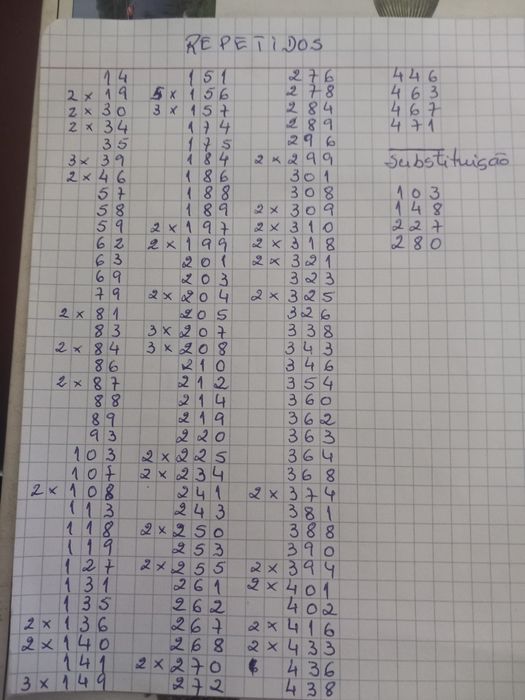 REPETIDOS
14
2 x 19
2 x 30
2 x 34
35
3 x 39
2 x 46
57
58
59
62
63
69
79
2 x 81
83
2 x 84
86
2 x 87
88
89
93
103
107
2 x 108
113
118
119
127
131
135
2 x 136
2 x 140
141
3 x 149
151
5 x 156
3 x 157
174
175
184
186
188
189
2 x 197
2 x 199
201
203
2 x 204
205
3 x 207
3 x 208
210
212
214
219
220
2 x 225
2 x 234
241
243
2 x 250
253
2 x 255
261
262
267
268
2 x 270
272
276
278
284
289
296
2 x 299
301
308
2 x 309
2 x 310
2 x 318
2 x 321
323
2 x 325
326
338
343
346
354
360
362
363
364
368
2 x 374
381
388
390
2 x 394
2 x 401
402
2 x 416
2 x 433
436
438
446
463
467
471
Substituição
103
148
227
280